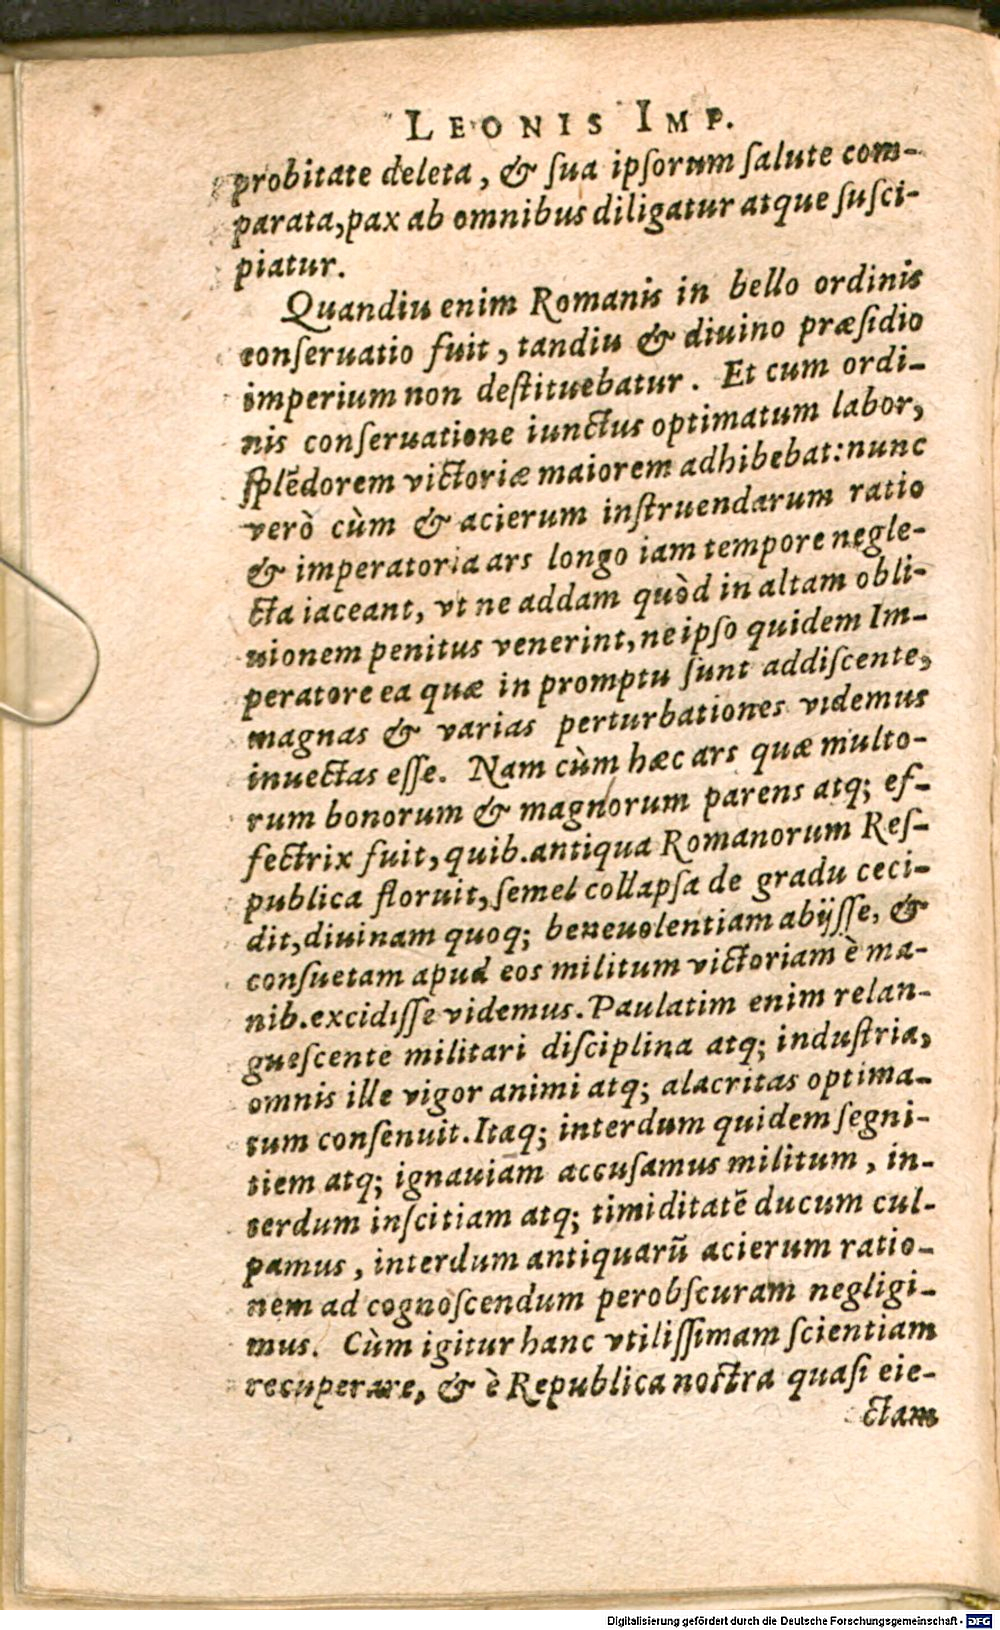 LEONIS IMP.
probitate deleta, & sua ipſorum ſalute com-
parata, pax ab omnibus diligatur atque ſuſci-
piatur.
Quandiu enim Romanis in bello ordinis
conſeruatio fuit, tandiu & diuino præſidio
imperium non deſtituebatur. Et cum ordi-
nis conſeruatione iunctus optimatum labor,
ſplẽdorem victoriæ maiorem adhibebat: nunc
verò cùm & acierum inſtruendarum ratio
& imperatoria ars longo iam tempore negle-
cta iaceant, vt ne addam quòd in altam obli-
uionem penitus venerint, ne ipſo quidem Im-
peratore ea quæ in promptu ſunt addiſcente,
magnas & varias perturbationes videmus
inuectas eſſe. Nam cùm hæc ars quæ multo-
rum bonorum & magnorum parens atq; ef-
fectrix fuit, quib. antiqua Romanorum Reſ-
publica floruit, ſemel collapſa de gradu ceci-
dit, diuinam quoq; beneuolentiam abijſſe, &
conſuetam apud eos militum victoriam è ma-
nib. excidiſſe videmus. Paulatim enim relan-
gueſcente militari diſciplina atq; induſtria,
omnis ille vigor animi atq; alacritas optima-
tum conſenuit. Itaq; interdum quidem ſegni-
tiem atq; ignauiam accuſamus militum, in-
terdum inſcitiam atq; timiditatẽ ducum cul-
pamus, interdum antiquarũ acierum ratio-
nem ad cognoſcendum perobſcuram negligi-
mus. Cùm igitur hanc vtiliſſimam ſcientiam
recuperare, & è Republica noctra quaſi eie-
ctam
Digitalisierung gefördert durch die Deutsche Forschungsgemeinschaft - DFG